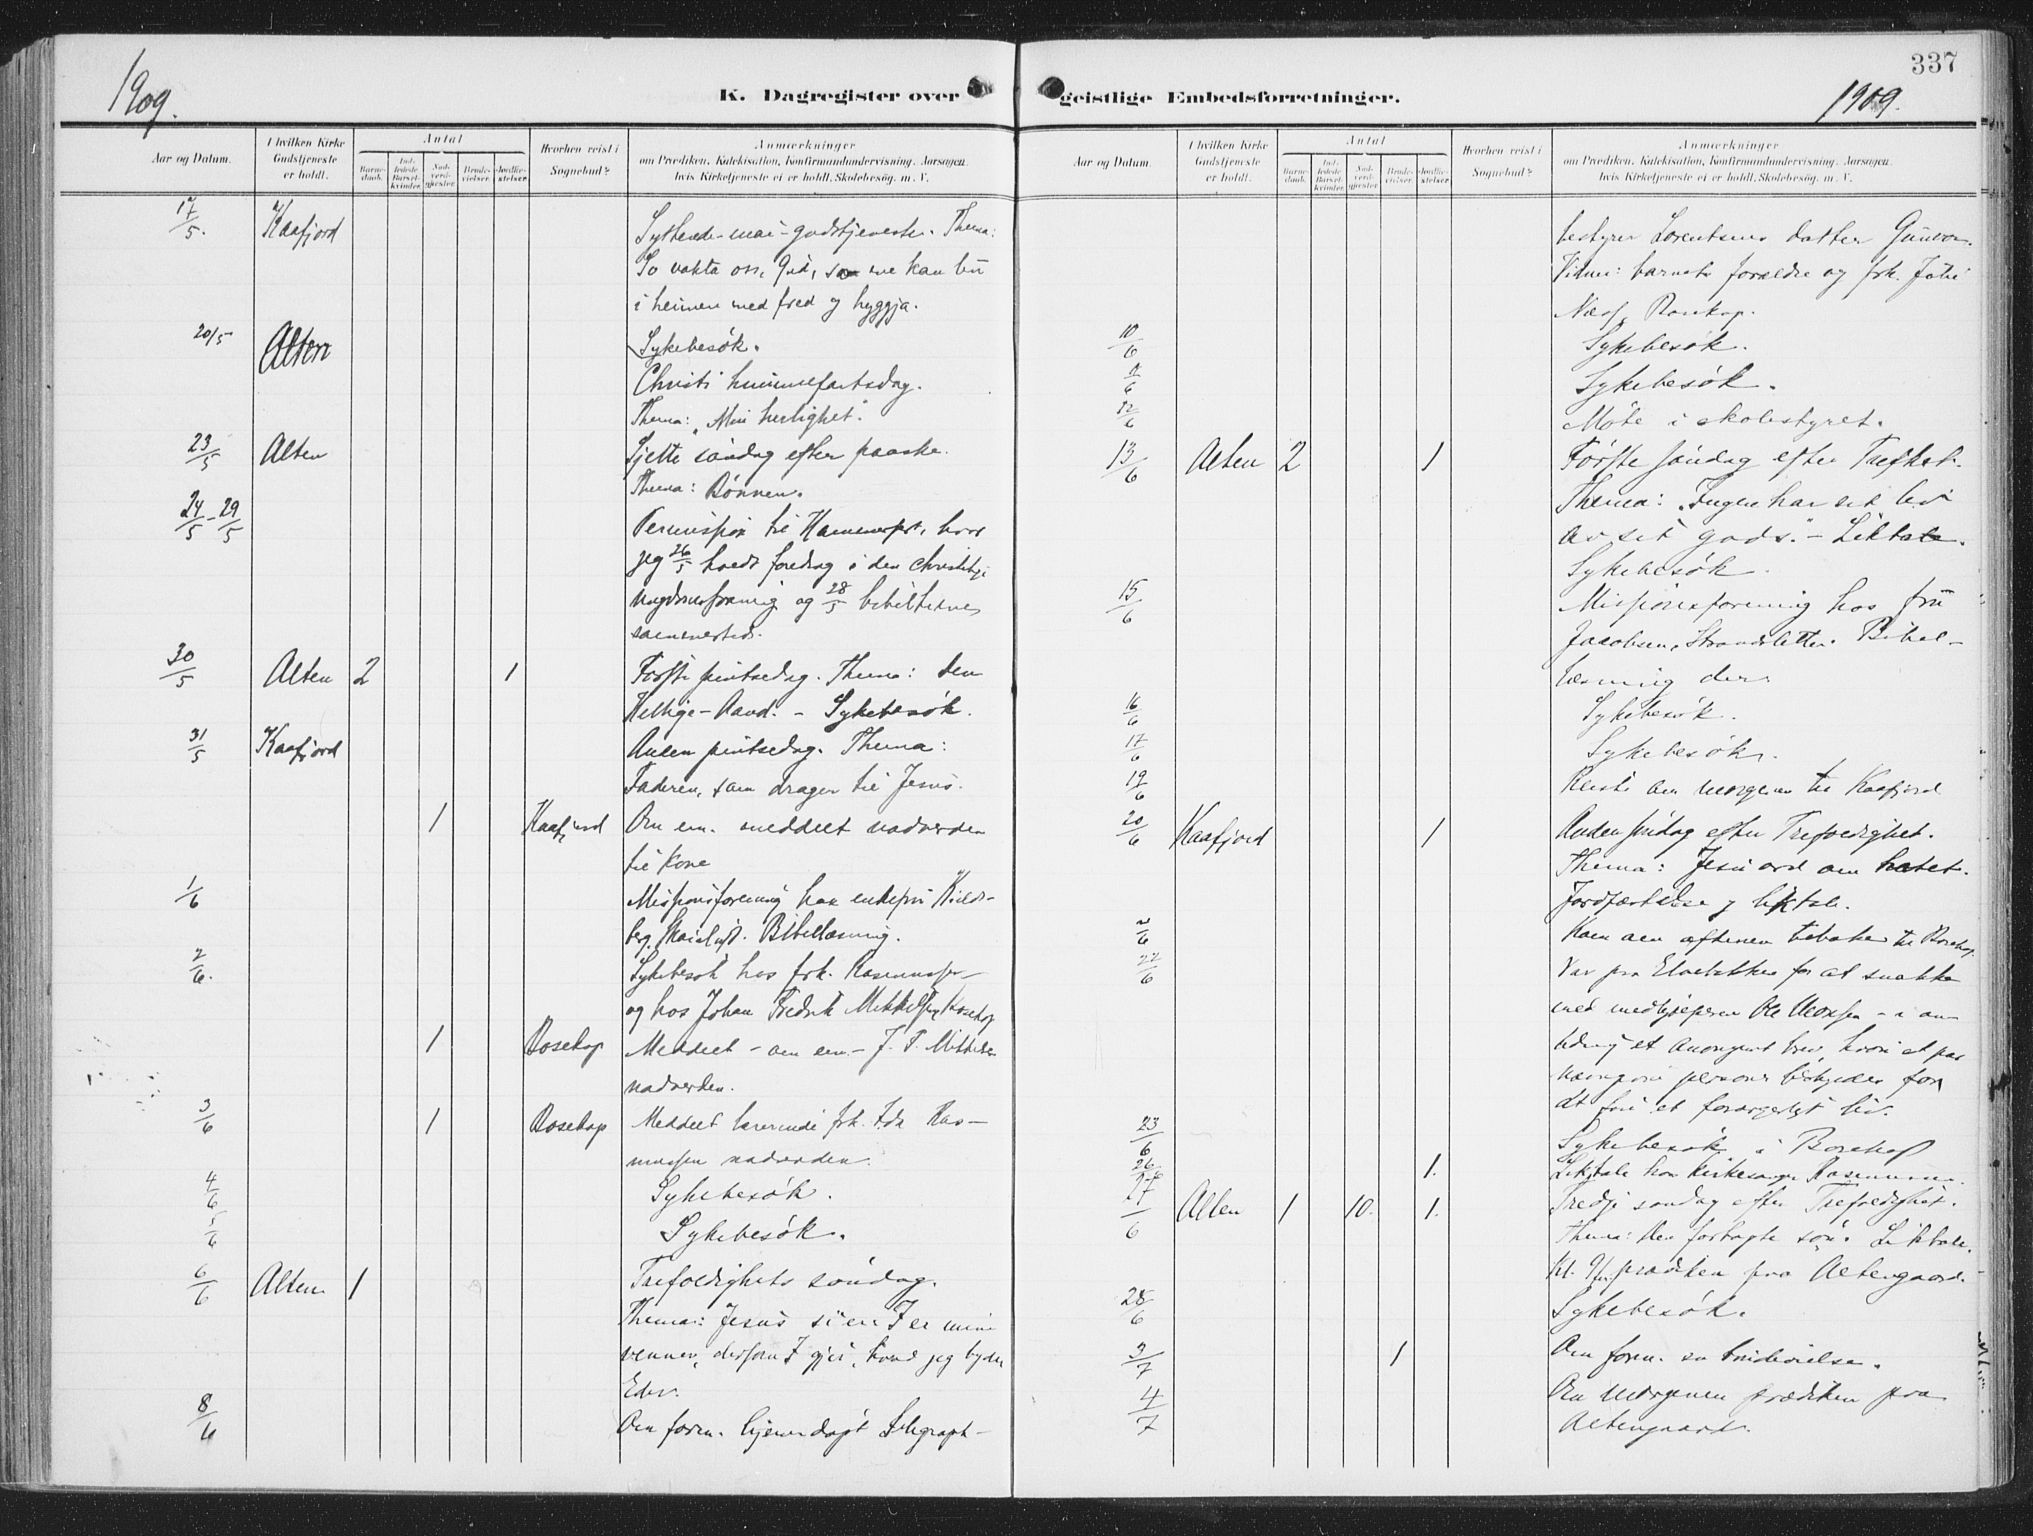 337
1909.
K. Dagregister over geistlige Embedsforretninger.
1909.
Aar og Datum.
I hvilken Kirke Gudstjeneste er holdt.
Antal
Barnedaab.
Indledede Barselkvinder.
Nadverdgjester.
Brudevielser.
Jordfæstelser.
Hvorhen reist i Sognebud?
Anmærkninger
om Prædiken, Katekisation, Konfirmandundervisning, Aarsagen,
hvis Kirketjeneste ei er holdt, Skolebesøg m. V.
17/5. Kaafjord Syttende-mai-gudstjeneste. Thema:
So vakta oss, Gud, so me kan bu
i heimen med fred og hyggja.
20/5 Alten Sykebesøk.
Christi himmelfartsdag.
Thema: "Min herlighet".
23/5 Alten Sjette søndag efter paaske.
Thema: Bønnen.
24/5 - 29/5 Permission til Hammerfest, hvor
jeg 26/5 holdt foredrag i den christelige
ungdomsforening og 28/5
sammesteds.
30/5 Alten 2 1 Første pintsedag. Thema: Den
Hellige-Aand. - Sykebesøk.
31/5 Kaafjord Anden pintsedag. Thema:
Faderen, som drager til Jesus.
1 Kaafjord Om em. meddelt nadverden
til kone
1/6 Missionsforening hos enkefru
Bibellæsning.
2/6. Sykebesøk hos frk. Rasmussen
og hos Johan Fredrik Mikkelsen, Bosekop
1 Bosekop Meddelt - om em. - J. F. Mikkelsen
nadverden.
3/6 1 Bosekop Meddelt lærerinde frk. Ida Ras-
mussen nadverden.
4/6 Sykebesøk.
5/6 Sykebesøk.
6/6 Alten 1 Trefoldighets søndag.
Thema: Jesus sier: I er mine
venner, dersom I gjør, hvad jeg byder
Eder.
8/6 Om form. hjemmedøpt telegraph-
Aar og Datum.
I hvilken Kirke Gudstjeneste er holdt.
Antal
Barnedaab.
Indledede Barselkvinder.
Nadverdgjester.
Brudevielser.
Jordfæstelser.
Hvorhen reist i Sognebud?
Anmærkninger
om Prædiken, Katekisation, Konfirmandundervisning, Aarsagen,
hvis Kirketjeneste ei er holdt, Skolebesøg m. V.
bestyrer Lorentsens datter Gunvor.
Vidner: barnets forældre og frk. Julie
Næss, Bosekop.
10/6 Sykebesøk.
11/6 Sykebesøk.
12/6 Møte i skolestyret.
13/6 Alten 2 1 Første søndag efter Trefhet.
Thema: "Ingen har sit liv
av sit gods." - Liktale.
Sykebesøk.
15/6 Missionsforening hos fru
Jacobsen, Strandsletten. Bibel-
læsning der.
16/6 Sykebesøk.
17/6 Sykebesøk.
19/6 Reiste om morgenen til Kaafjord
20/6 Kaafjord 1 Anden søndag efter Trefoldighet.
Thema: Jesu ord om hatet.
Jordfæstelse og liktale.
2/6 Kom om aftenen tilbake til Bosekop.
22/6 Var paa Elvebakken for at snakke
med medhjelperen Ole Monsen - i an-
ledning et anonymt brev, hvori et par
navngivne personer beskyldes for
at føre et forargerligt liv.
23/6 Sykebesøk i Bosekop
26/6 1. Liktale hos kirkesanger Rasmussen.
27/6 Alten 1 10. 1. Tredje søndag efter Trefoldighet.
Thema: Den fortapte søn. Liktale.
prædiken paa Altengaard.
28/6 Sykebesøk.
3/7 1 Om form. en brudevielse.
4/7 Om morgenen prædiken paa
Altengaard.